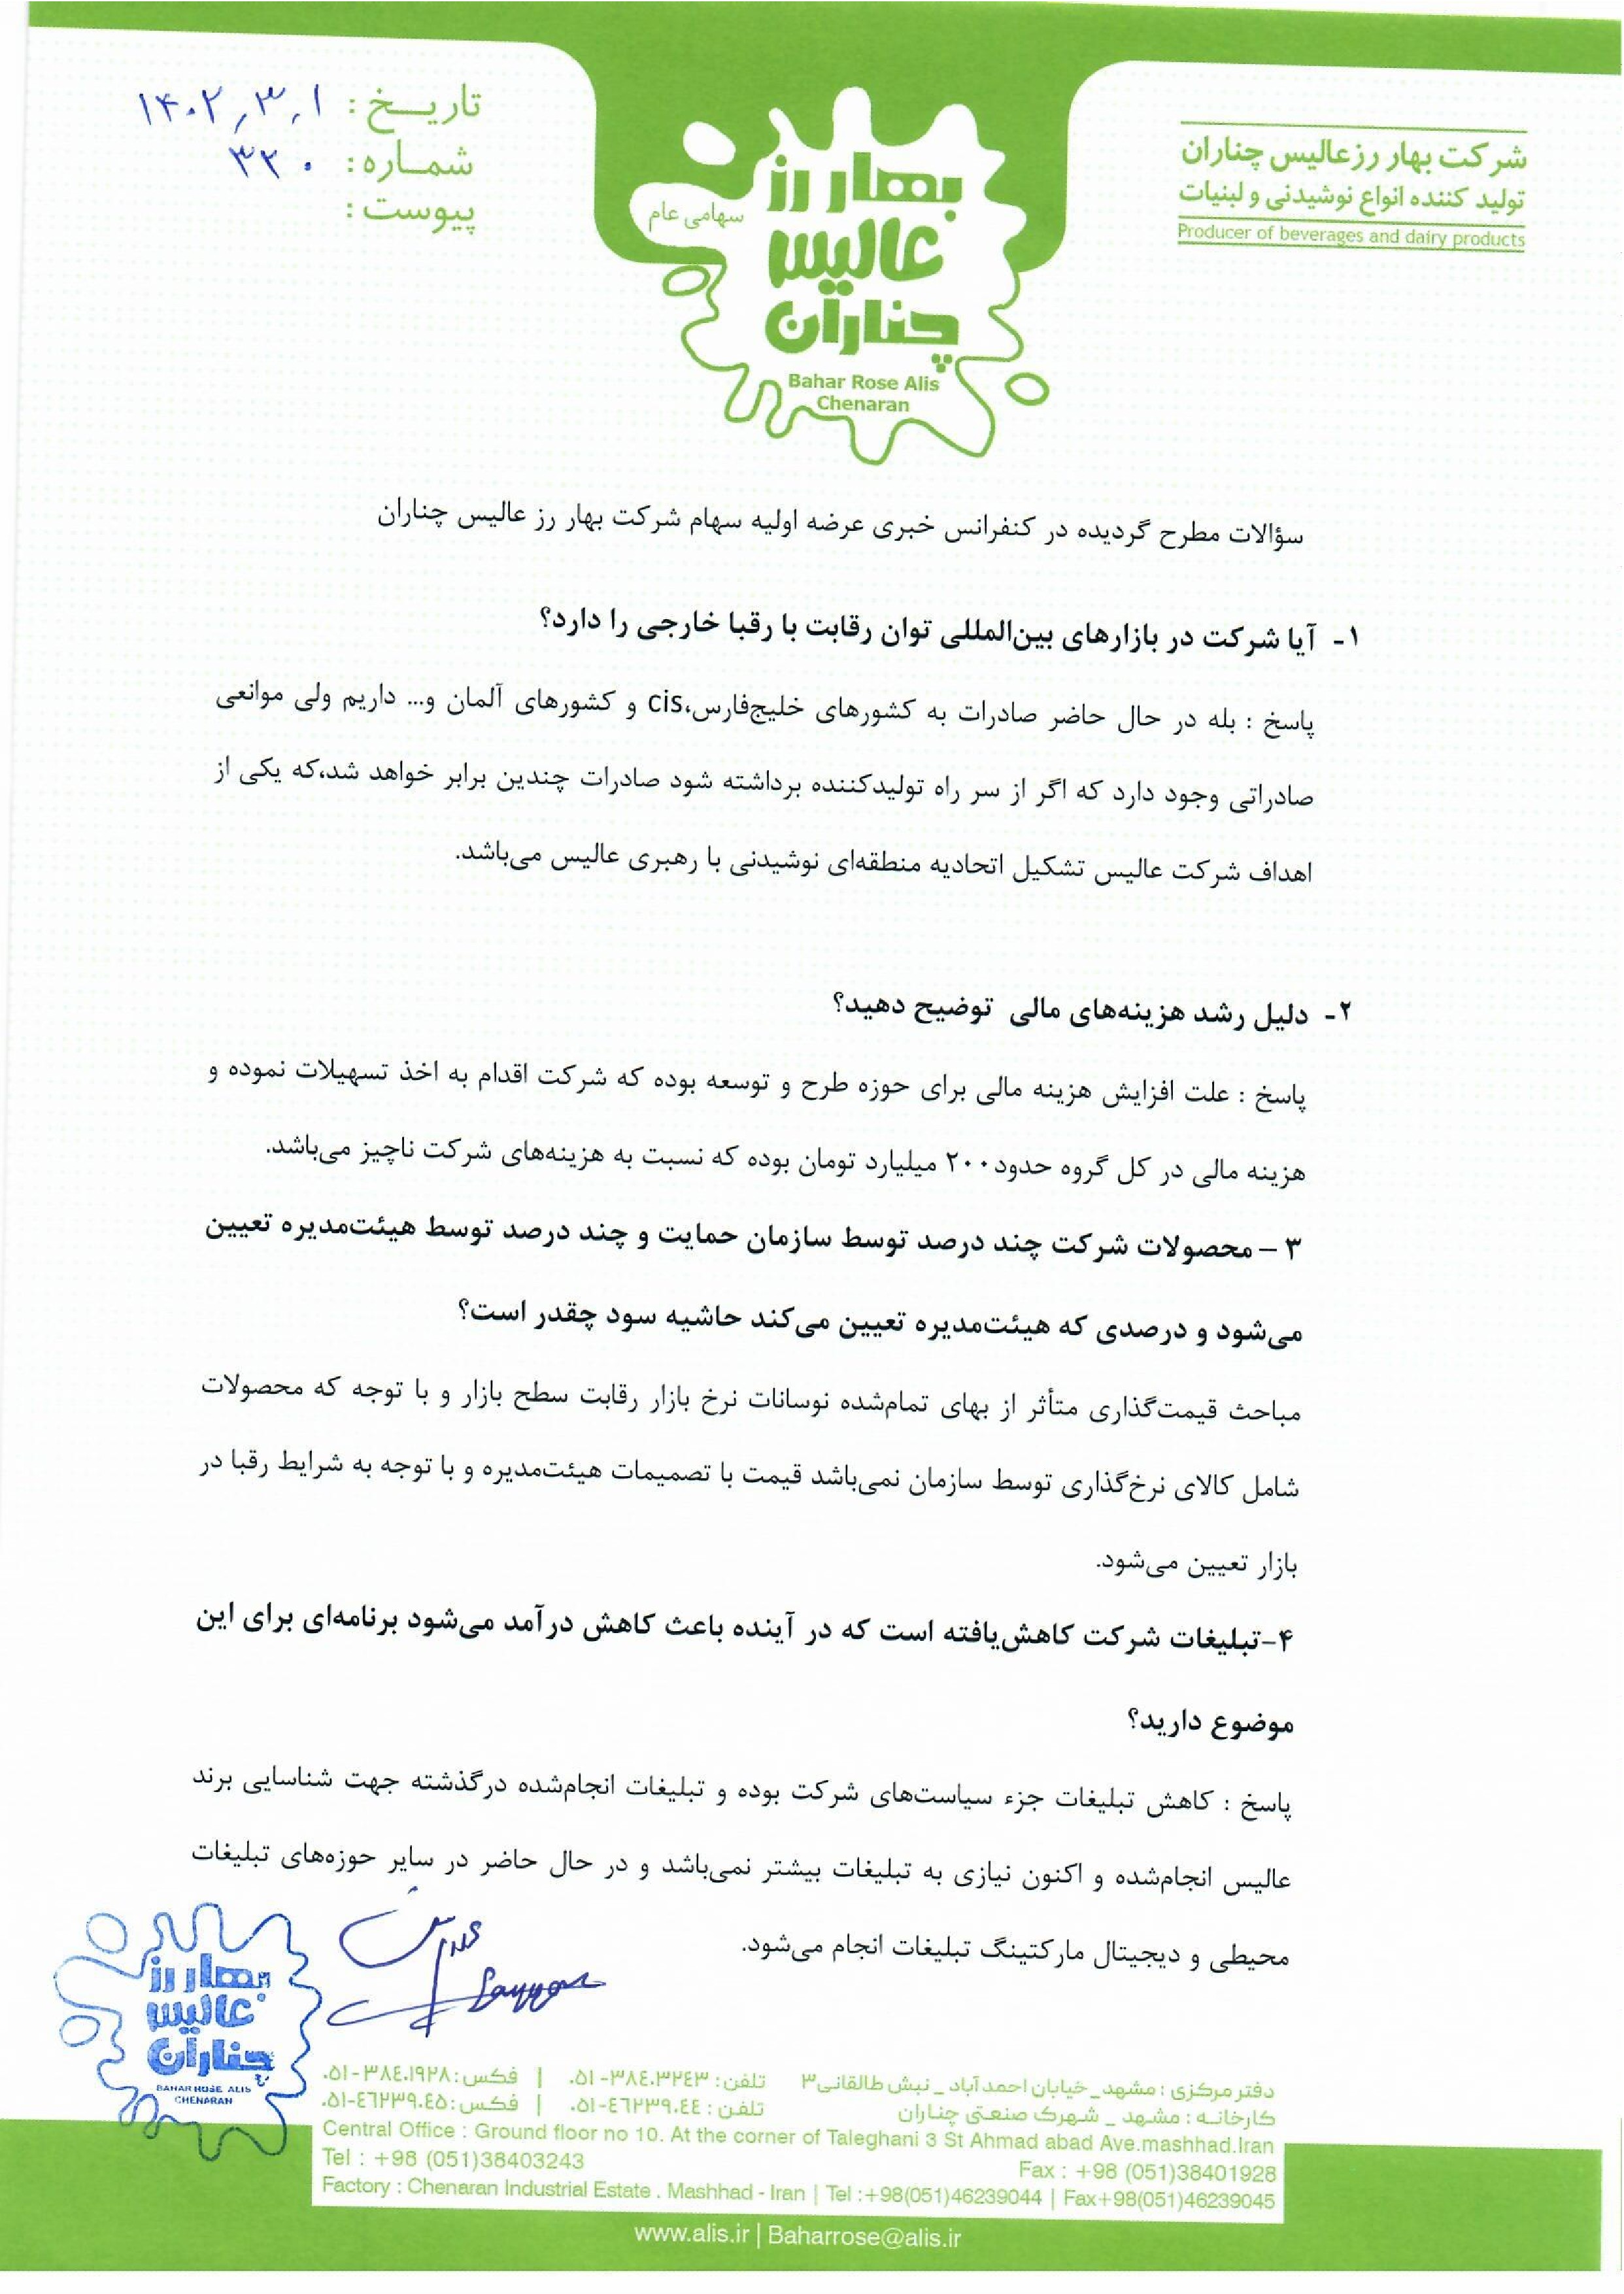 شرکت بهار رز عالیس چناران
تولید کننده انواع نوشیدنی و لبنیات
Producer of beverages and dairy products
بهار رز
عالیس
چناران
سهامی عام
Bahar Rose Alis
Chenaran
تاریخ : ۱۴۰۲,۳,۱
شماره : ۳۲۰
پیوست :
سؤالات مطرح گردیده در کنفرانس خبری عرضه اولیه سهام شرکت بهار رز عالیس چناران
۱- آیا شرکت در بازارهای بین‌المللی توان رقابت با رقبا خارجی را دارد؟
پاسخ : بله در حال حاضر صادرات به کشورهای خلیج‌فارس،cis و کشورهای آلمان و... داریم ولی موانعی
صادراتی وجود دارد که اگر از سر راه تولیدکننده برداشته شود صادرات چندین برابر خواهد شد،که یکی از
اهداف شرکت عالیس تشکیل اتحادیه منطقه‌ای نوشیدنی با رهبری عالیس می‌باشد.
۲- دلیل رشد هزینه‌های مالی توضیح دهید؟
پاسخ : علت افزایش هزینه مالی برای حوزه طرح و توسعه بوده که شرکت اقدام به اخذ تسهیلات نموده و
هزینه مالی در کل گروه حدود۲۰۰ میلیارد تومان بوده که نسبت به هزینه‌های شرکت ناچیز می‌باشد.
۳ – محصولات شرکت چند درصد توسط سازمان حمایت و چند درصد توسط هیئت‌مدیره تعیین
می‌شود و درصدی که هیئت‌مدیره تعیین می‌کند حاشیه سود چقدر است؟
مباحث قیمت‌گذاری متأثر از بهای تمام‌شده نوسانات نرخ بازار رقابت سطح بازار و با توجه که محصولات
شامل کالای نرخ‌گذاری توسط سازمان نمی‌باشد قیمت با تصمیمات هیئت‌مدیره و با توجه به شرایط رقبا در
بازار تعیین می‌شود.
۴-تبلیغات شرکت کاهش‌یافته است که در آینده باعث کاهش درآمد می‌شود برنامه‌ای برای این
موضوع دارید؟
پاسخ : کاهش تبلیغات جزء سیاست‌های شرکت بوده و تبلیغات انجام‌شده درگذشته جهت شناسایی برند
عالیس انجام‌شده و اکنون نیازی به تبلیغات بیشتر نمی‌باشد و در حال حاضر در سایر حوزه‌های تبلیغات
محیطی و دیجیتال مارکتینگ تبلیغات انجام می‌شود.
بهار رز
عالیس
چناران
BAHAR ROSE ALIS
CHENARAN
دفتر مرکزی : مشهد _ خیابان احمد آباد _ نبش طالقانی۳ تلفن : ۳۸۴۰۳۲۴۳-۰۵۱ | فکس : ۳۸۴۰۱۹۲۸-۰۵۱
کارخانه : مشهد _ شهرک صنعتی چناران تلفن : ۴۶۲۳۹۰۴۴-۰۵۱ | فکس : ۴۶۲۳۹۰۴۵-۰۵۱
Central Office : Ground floor no 10. At the corner of Taleghani 3 St Ahmad abad Ave.mashhad.Iran
Tel : +98 (051)38403243 Fax : +98 (051)38401928
Factory : Chenaran Industrial Estate . Mashhad - Iran | Tel :+98(051)46239044 | Fax+98(051)46239045
www.alis.ir | Baharrose@alis.ir